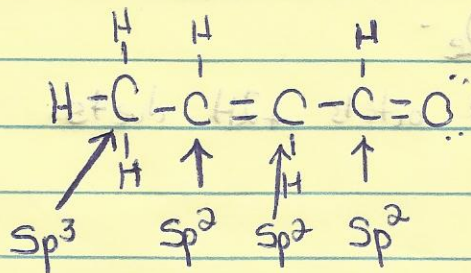 H H H
H-C-C=C-C=O
H H
Sp³ Sp² Sp² Sp²